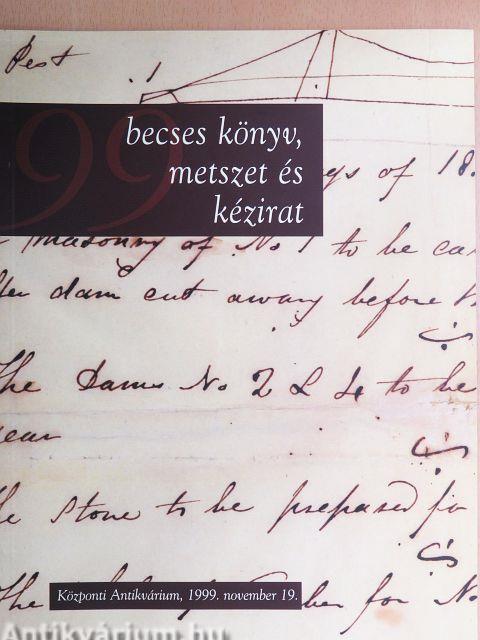 Pest
99
becses könyv,
metszet és
kézirat
of 18.
Masonry of No 1 to be
dam cut away before
The Dams No 2 & 4 to be
stone to be prepared
Központi Antikvárium, 1999. november 19.
The for No
Antikvárium.hu